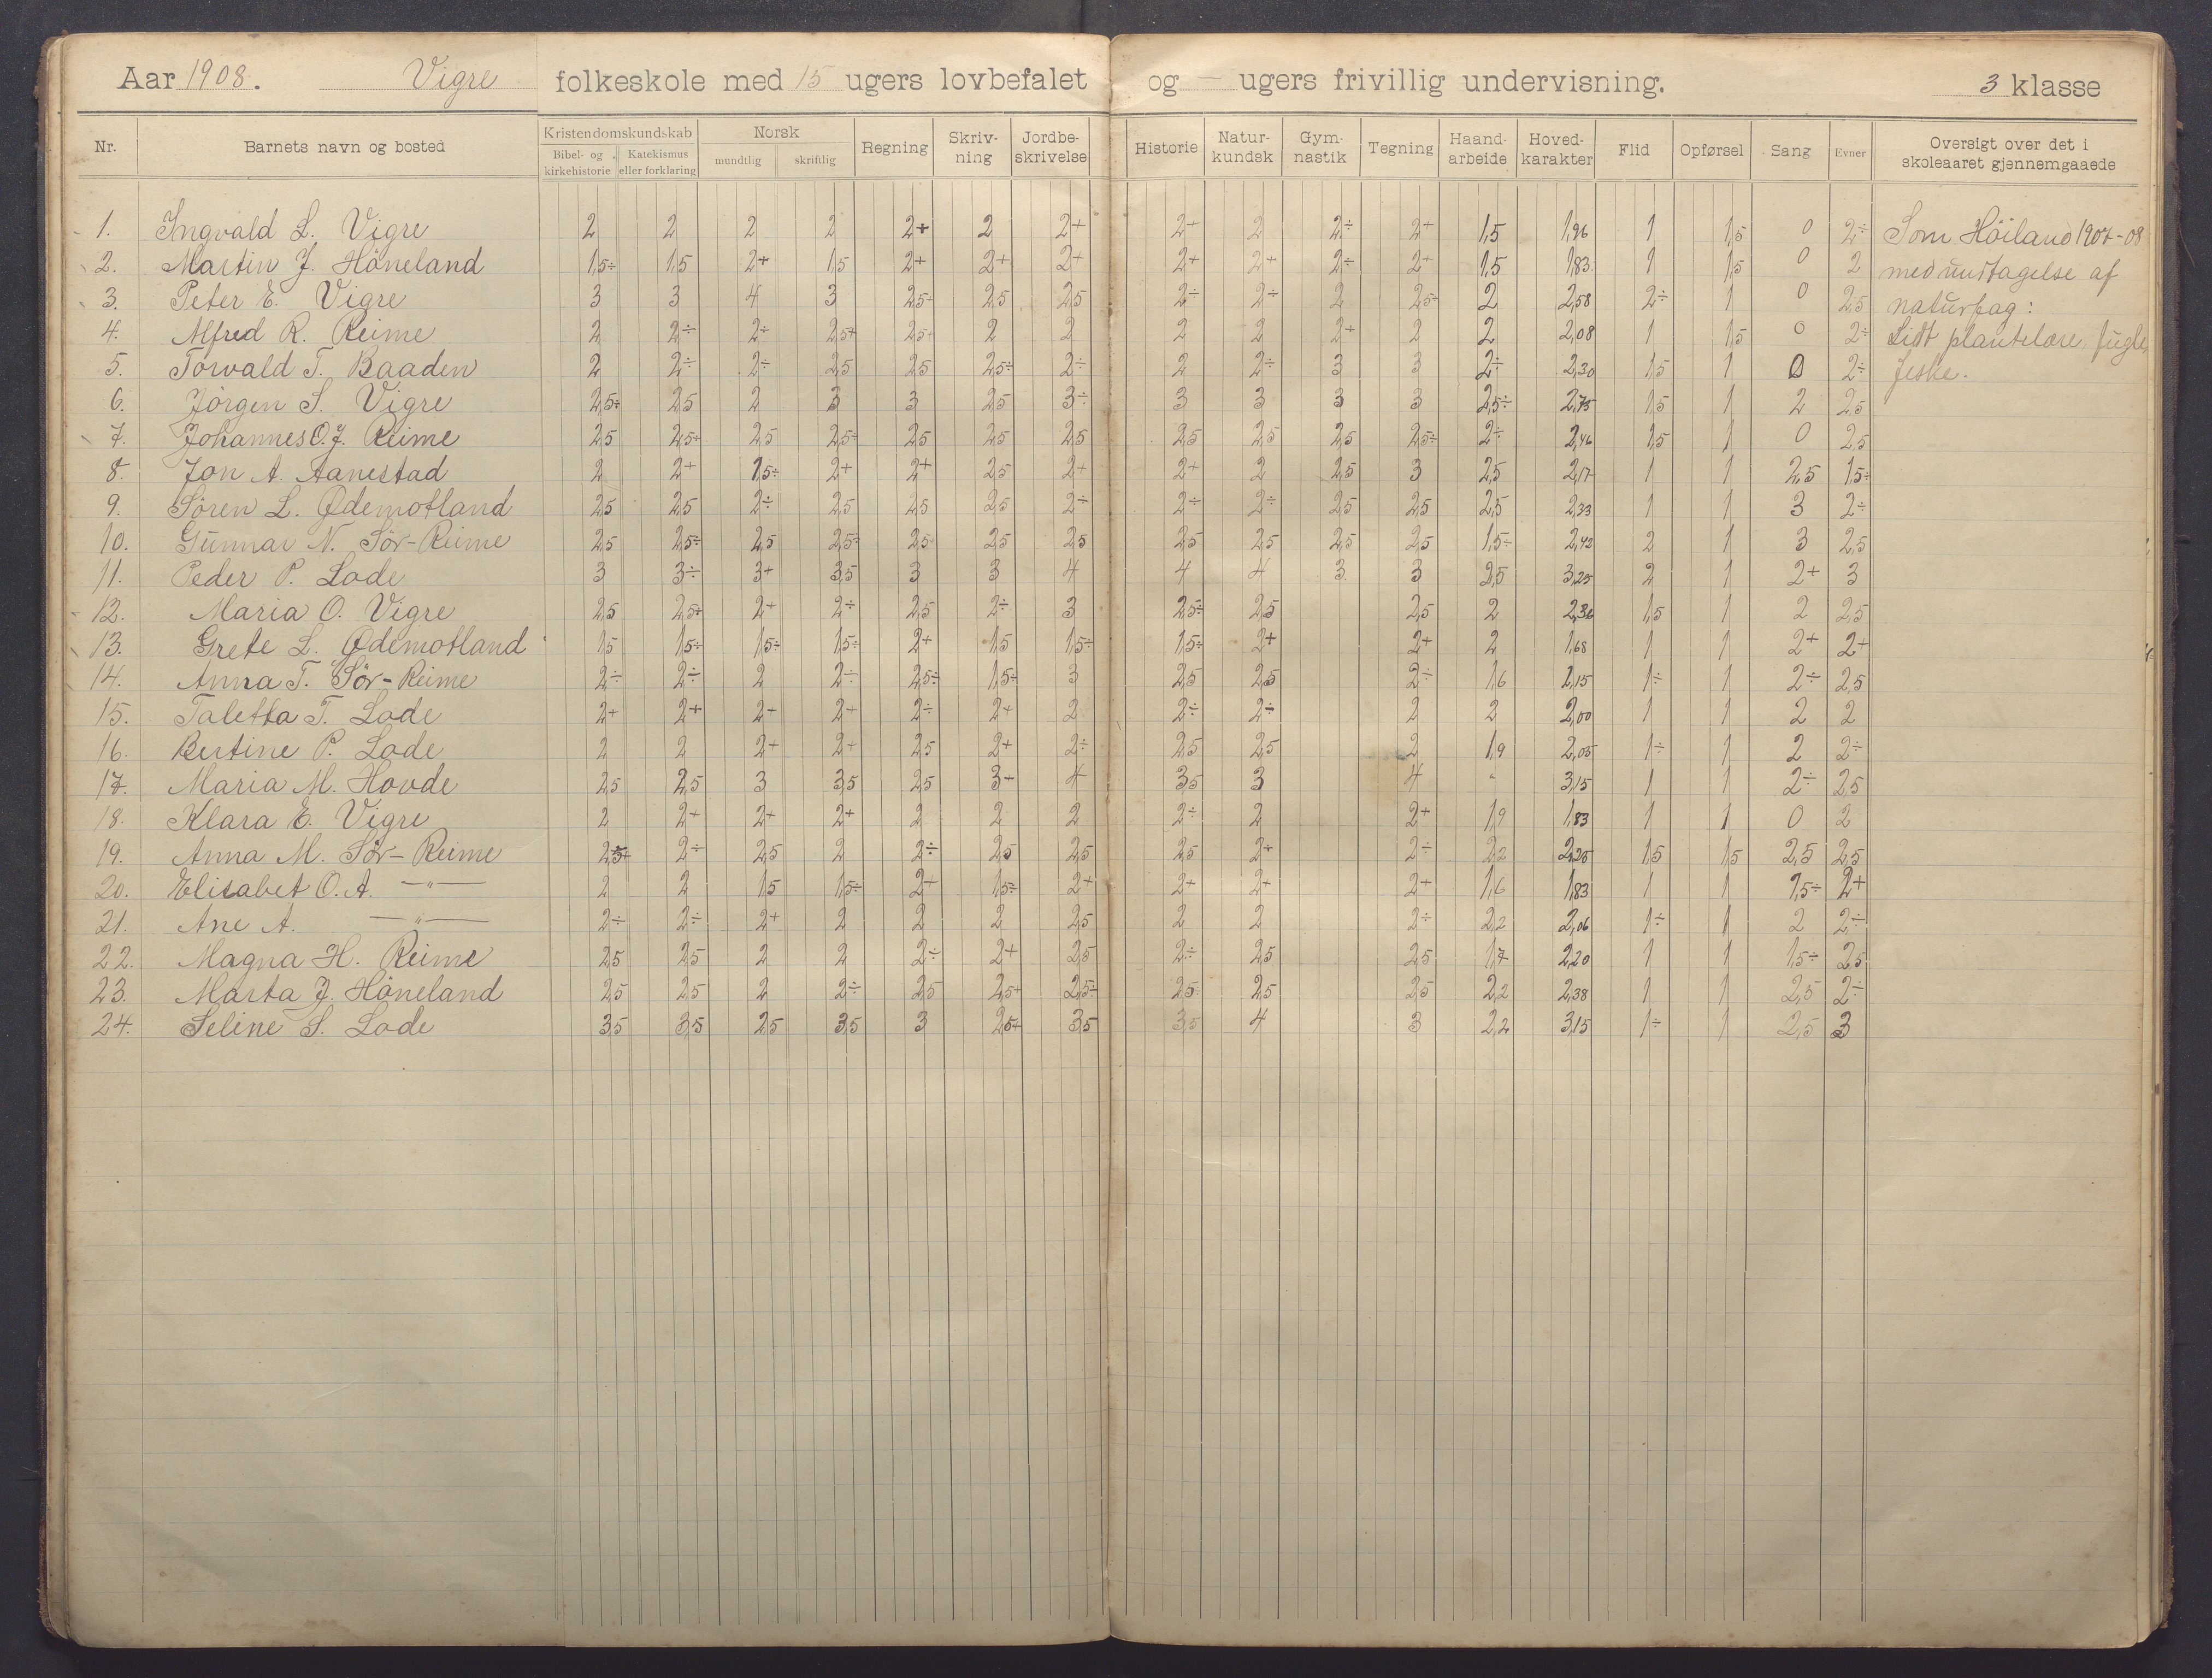 Aar 1908. Vigre folkeskole med 15 ugers lovbefalet og — ugers frivillig undervisning. 3 klasse
Nr. Barnets navn og bosted Kristendomskundskab Norsk Regning Skriv-ning Jordbe-skrivelse Historie Natur-kundsk Gym-nastik Tegning Haand-arbeide Hoved-karakter Flid Opførsel Sang Evner Oversigt over det i skoleaaret gjennemgaaede
Bibel- og kirkehistorie Katekismus eller forklaring mundtlig skriftlig
1. Ingvald L. Vigre 2 2 2 2 2+ 2 2+ 2+ 2 2÷ 2+ 1,5 1,96 1 1,5 0 2÷ Som Höiland 1907-08
2. Martin J. Höneland 1,5÷ 1,5 2+ 1,5 2+ 2+ 2+ 2+ 2+ 2÷ 2+ 1,5 1,83 1 1,5 0 2 med undtagelse af
3. Peter E. Vigre 3 3 4 3 2,5÷ 2,5 2,5 2÷ 2÷ 2 2,5÷ 2 2,58 2÷ 1 0 2,5 naturfag:
4. Alfred R. Reime 2 2÷ 2÷ 2,5+ 2,5÷ 2 2 2 2 2+ 2 2 2,08 1 1,5 0 2÷ Lidt plantelære, fugle,
5. Torvald T. Baaden 2 2÷ 2÷ 2,5 2,5 2,5÷ 2÷ 2 2÷ 3 3 2÷ 2,30 1,5 1 0 2÷ feske.
6. Jörgen S. Vigre 2,5÷ 2,5 2 3 3 2,5 3÷ 3 3 3 3 2,5÷ 2,75 1,5 1 2 2,5
7. Johannes O. J. Reime 2,5 2,5÷ 2,5 2,5÷ 2,5 2,5 2,5 2,5 2,5 2,5 2,5÷ 2÷ 2,46 1,5 1 0 2,5
8. Jon A. Aanestad 2 2+ 1,5÷ 2+ 2+ 2,5 2+ 2+ 2 2,5 3 2,5 2,17 1 1 2,5 1,5÷
9. Sören L. Ødemotland 2,5 2,5 2÷ 2,5 2,5 2,5 2÷ 2÷ 2÷ 2,5 2,5 2,5 2,33 1 1 3 2÷
10. Gunnar N. Sör-Reime 2,5 2,5÷ 2,5 2,5÷ 2,5÷ 2,5 2,5 2,5 2,5 2,5 2,5 1,5÷ 2,42 2 1 3 2,5
11. Peder P. Lode 3 3÷ 3+ 3,5 3 3 4 4 4 3 3 2,5 3,25 2 1 2+ 3
12. Maria O. Vigre 2,5 2,5+ 2+ 2÷ 2,5 2÷ 3 2,5÷ 2,5 2,5 2 2,36 1,5 1 2 2,5
13. Grete L. Ødemotland 1,5 1,5÷ 1,5÷ 1,5÷ 2+ 1,5 1,5÷ 1,5÷ 2+ 2+ 2 1,68 1 1 2+ 2+
14. Anna T. Sör-Reime 2÷ 2÷ 2 2÷ 2,5÷ 1,5÷ 3 2,5 2,5 2÷ 1,6 2,15 1÷ 1 2÷ 2,5
15. Taletta T. Lode 2+ 2+ 2+ 2+ 2÷ 2+ 2 2÷ 2÷ 2 2 2,00 1 1 2 2
16. Bertine P. Lode 2 2 2+ 2+ 2,5 2+ 2÷ 2,5 2,5 2 1,9 2,05 1÷ 1 2 2÷
17. Maria M. Hovde 2,5 2,5 3 3,5 2,5 3+ 4 3,5 3 4 " 3,15 1 1 2÷ 2,5
18. Klara E. Vigre 2 2+ 2+ 2+ 2 2 2 2÷ 2 2+ 1,9 1,83 1 1 0 2
19. Anna M. Sör-Reime 2,5+ 2÷ 2,5 2 2÷ 2,5 2,5 2,5 2÷ 2÷ 2,2 2,25 1,5 1,5 2,5 2,5
20. Elisabet O. A. —"— 2 2 1,5 1,5÷ 2+ 1,5÷ 2+ 2+ 2+ 2+ 1,6 1,83 1 1 1,5÷ 2+
21. Ane A. —"— 2÷ 2÷ 2+ 2 2 2 2,5 2 2 2÷ 2,2 2,06 1÷ 1 2 2÷
22. Magna H. Reime 2,5 2,5 2 2 2÷ 2+ 2,5 2÷ 2,5 2,5 1,7 2,20 1 1 1,5÷ 2,5
23. Marta J. Höneland 2,5 2,5 2 2÷ 2,5 2,5+ 2,5÷ 2,5÷ 2,5 2,5 2,2 2,38 1 1 2,5 2÷
24. Seline S. Lode 3,5 3,5 2,5 3,5 3 2,5+ 3,5 3,5 4 3 2,2 3,15 1÷ 1 2,5 3